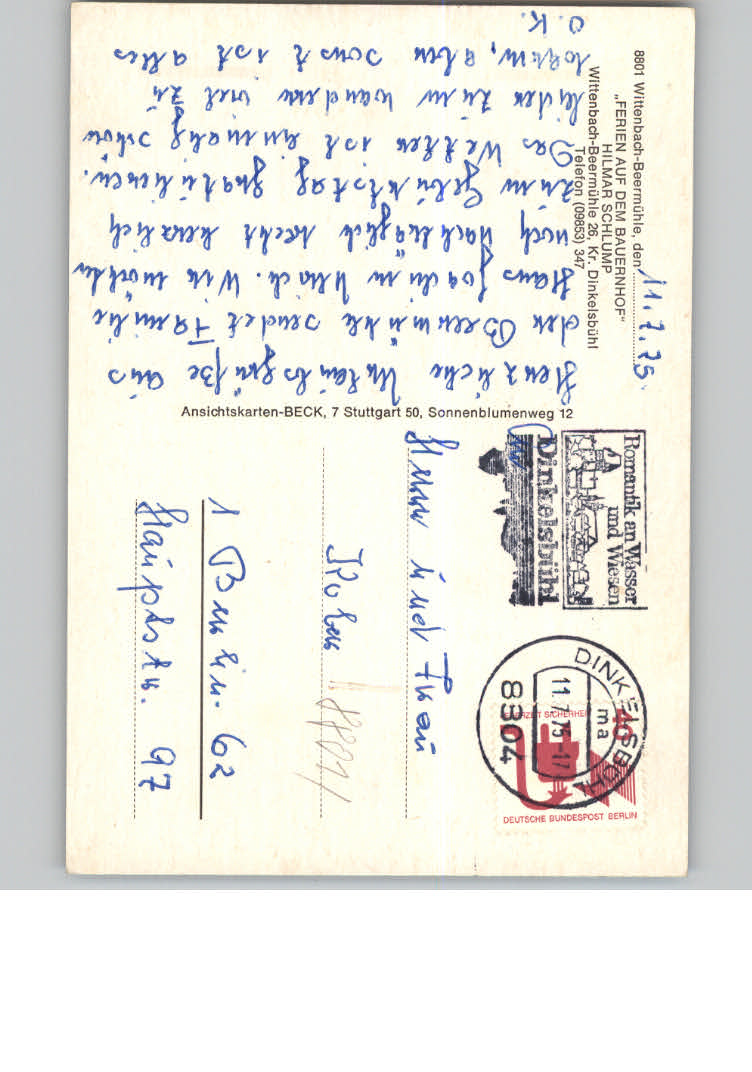 8801 Wittenbach-Beermühle, den 11.7.75
„FERIEN AUF DEM BAUERNHOF"
HILMAR SCHLUMP
Wittenbach-Beermühle 26, Kr. Dinkelsbühl
Telefon (09853) 347
Herzliche Urlaubsgrüße aus
der Beermühle sendet Familie
Hans Joachim Wir möchten
noch nachträglich recht herzlich
zum Geburtstag gratulieren.
Das Wetter ist einmalig schön
leider zum wandern viel zu
warm, aber sonst ist alles
O.K.
Ansichtskarten-BECK, 7 Stuttgart 50, Sonnenblumenweg 12
Romantik an Wasser
und Wiesen
Dinkelsbühl
DINKELSBÜHL
ma
11.7.75-17
8804
40
JEDERZEIT SICHERHEIT
DEUTSCHE BUNDESPOST BERLIN
An
Herrn und Frau
1 Berlin. 62
Hauptstr. 97